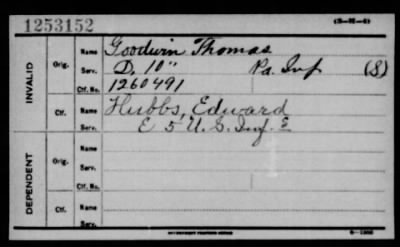 1253152
INVALID
Orig. Name Goodwin Thomas
Serv. D, 10" Pa. Inf (S)
Ctf. No. 1260491
Ctf. Name Hubbs, Edward
Serv. E 5 U.S. Inf.
DEPENDENT
Orig. Name
Serv.
Ctf. No.
Ctf. Name
Serv.